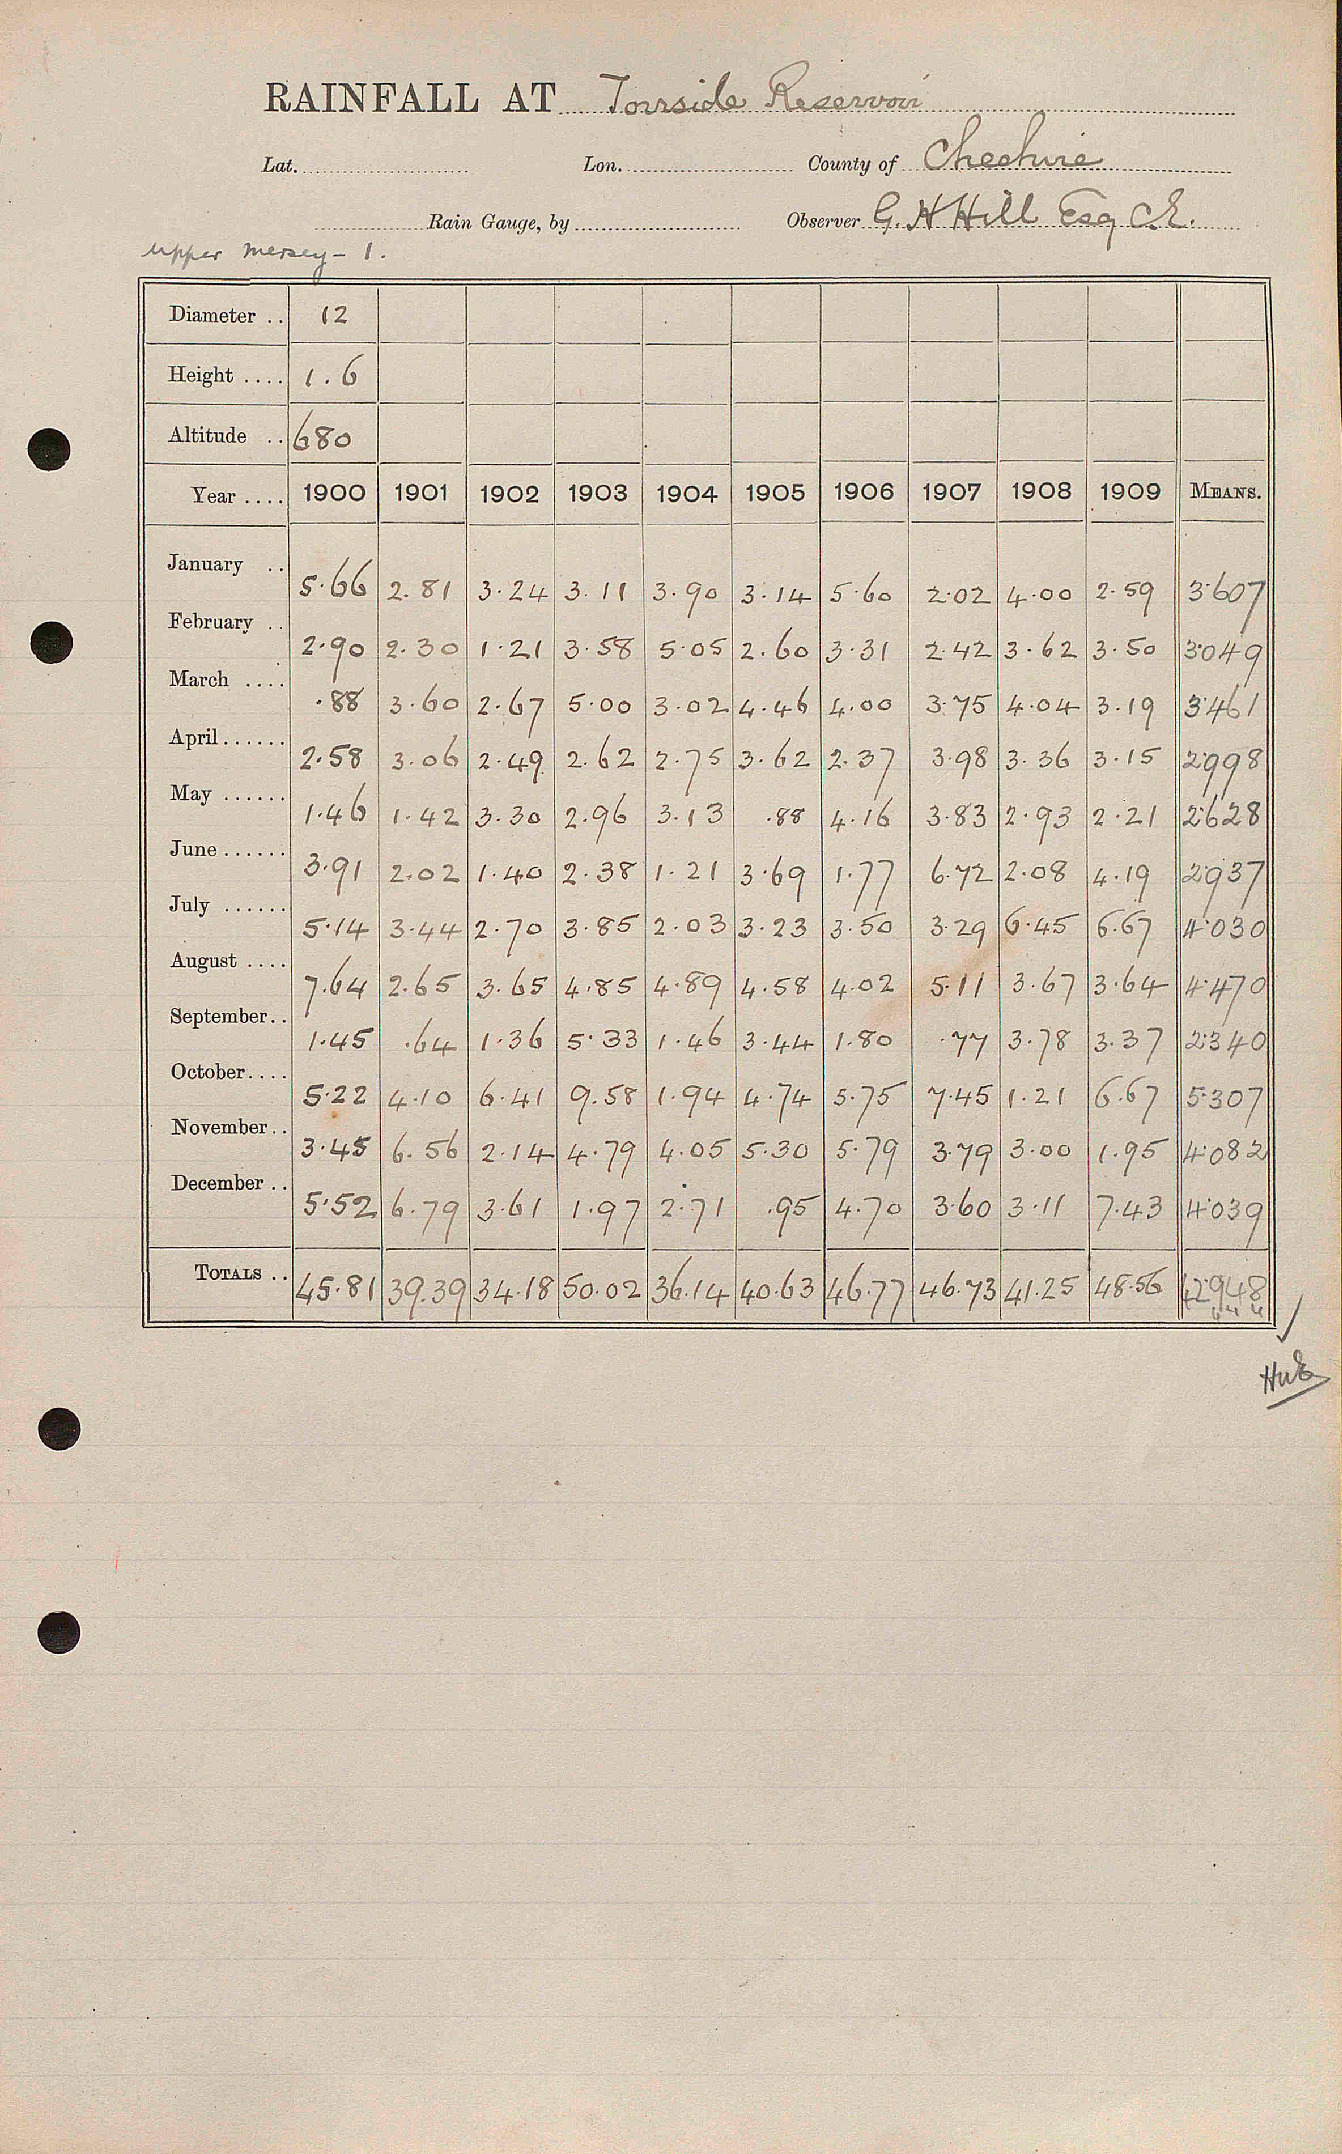 RAINFALL AT Torrside Reservoir
Lat. Lon. County of Cheshire
Rain Gauge, by Observer G. H Hill Esq C.E.
Upper Mersey - 1.
Diameter .. 12
Height .... 1.6
Altitude .. 680
Year .... 1900 1901 1902 1903 1904 1905 1906 1907 1908 1909 MEANS.
January .. 5.66 2.81 3.24 3.11 3.90 3.14 5.60 2.02 4.00 2.59 3.607
February .. 2.90 2.30 1.21 3.58 5.05 2.60 3.31 2.42 3.62 3.50 3.049
March .... .88 3.60 2.67 5.00 3.02 4.46 4.00 3.75 4.04 3.19 3.461
April ...... 2.58 3.06 2.49 2.62 2.75 3.62 2.37 3.98 3.36 3.15 2.998
May ...... 1.46 1.42 3.30 2.96 3.13 .88 4.16 3.83 2.93 2.21 2.628
June ...... 3.91 2.02 1.40 2.38 1.21 3.69 1.77 6.72 2.08 4.19 2.937
July ...... 5.14 3.44 2.70 3.85 2.03 3.23 3.50 3.29 6.45 6.67 4.030
August .... 7.64 2.65 3.65 4.85 4.89 4.58 4.02 5.11 3.67 3.64 4.470
September .. 1.45 .64 1.36 5.33 1.46 3.44 1.80 .77 3.78 3.37 2.340
October .... 5.22 4.10 6.41 9.58 1.94 4.74 5.75 7.45 1.21 6.67 5.307
November .. 3.45 6.56 2.14 4.79 4.05 5.30 5.79 3.79 3.00 1.95 4.082
December .. 5.52 6.79 3.61 1.97 2.71 .95 4.70 3.60 3.11 7.43 4.039
TOTALS .. 45.81 39.39 34.18 50.02 36.14 40.63 46.77 46.73 41.25 48.56 42.948